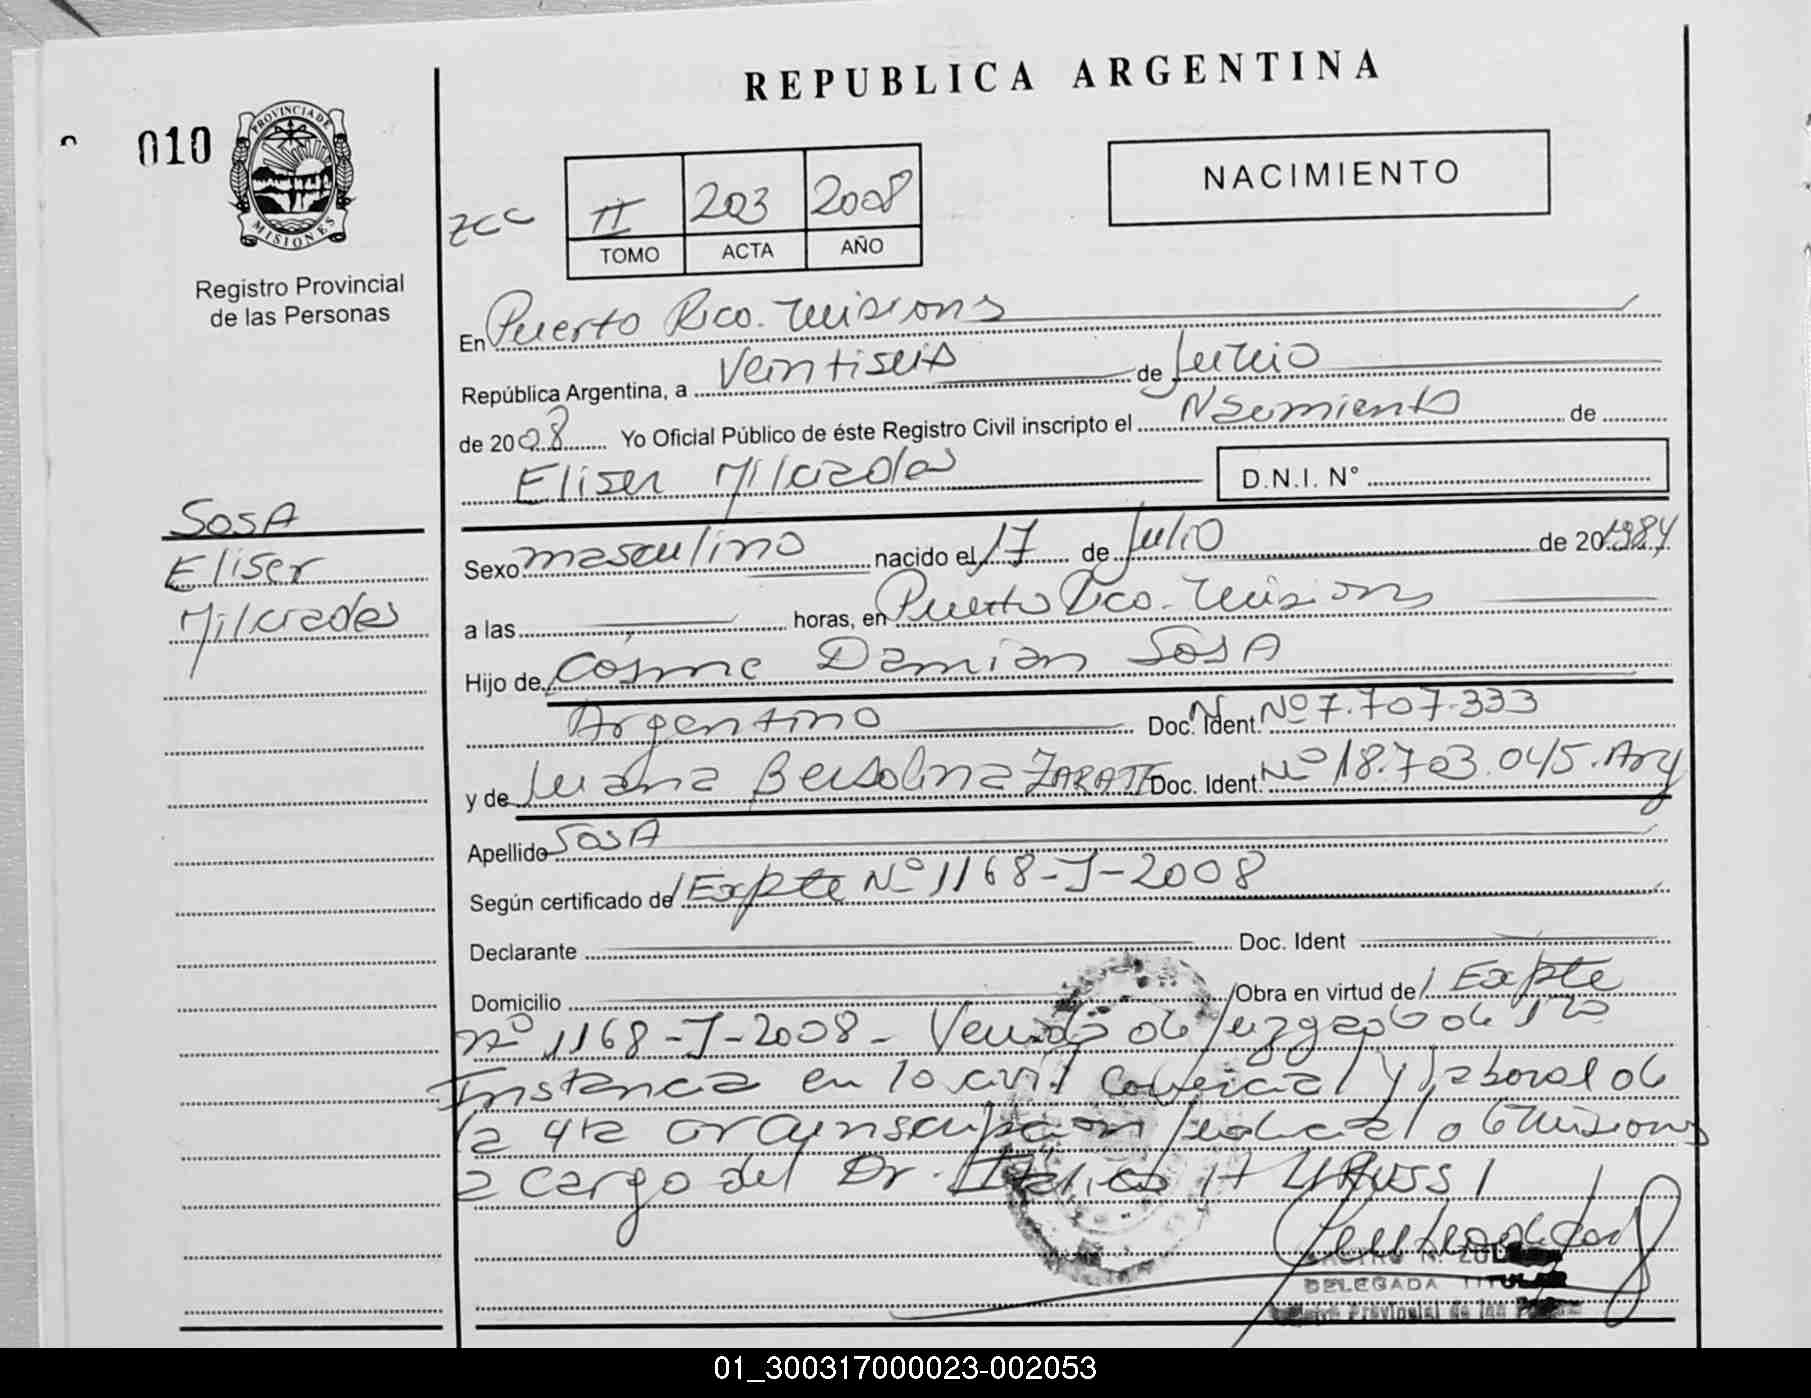 REPUBLICA ARGENTINA
010
PROVINCIA DE
MISIONES
Registro Provincial
de las Personas
NACIMIENTO
II 203 2008
TOMO ACTA AÑO
En Puerto Rico. Misiones
República Argentina, a Veintiseis de Junio
de 2008 Yo Oficial Público de éste Registro Civil inscripto el Nacimiento de
Eliser Milciades D.N.I. N°
SOSA
Eliser
Milciades
Sexo masculino nacido el 17 de Julio de 20 1984
a las horas, en Puerto Rico. Misiones
Hijo de Cosme Damian SOSA
Argentino Doc. Ident. Nº 7.707.333
y de Juana ZARATE Doc. Ident. Nº 18.703.045. Arg
Apellido SOSA
Según certificado de Expte Nº 1168-J-2008
Declarante Doc. Ident
Domicilio Obra en virtud de Expte
nº 1168-J-2008- Juzgado de 1ra
Instancia en lo civil comercial y laboral de
la 4ta circunscripción judicial de Misiones
a cargo del Dr.
DELEGADA TITULAR
Provincial de las
01_300317000023-002053